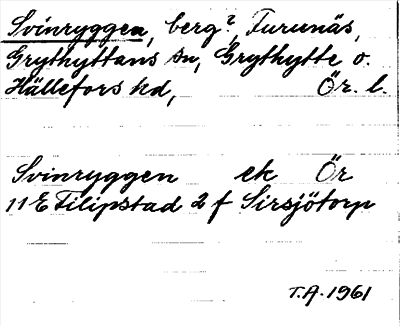 Svinryggen, berg?, Furunäs,
Grythyttans sn, Grythytte o.
Hällefors hd, Ör. l.
Svinryggen ek Ör
11E Filipstad 2 f Sirsjötorp
T.A. 1961